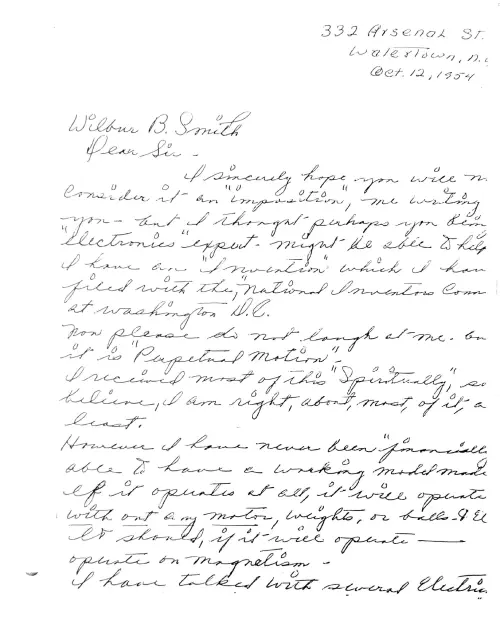 332 Arsenal St.
Watertown, N.Y
Oct. 12, 1954
Wilbur B. Smith
Dear Sir -
I sincerely hope you will n
consider it an "imposition", me writing
you - but I thought perhaps you bein
"electronics" expert - might be able to help
I have an "Invention" which I hav
filed with the, "National Inventors Coun
at Washington D.C.
Now please do not laugh at me. bu
it is "Perpetual Motion".
I received most of this "Spiritually", so
believe, I am right, about, most, of it, a
least.
However I have never been "financially
able to have a working model made
If it operates at all, it will operate
with out any motor, weights, or balls. & El
It should, if it will operate —
operate on magnetism -
I have talked with several Electric